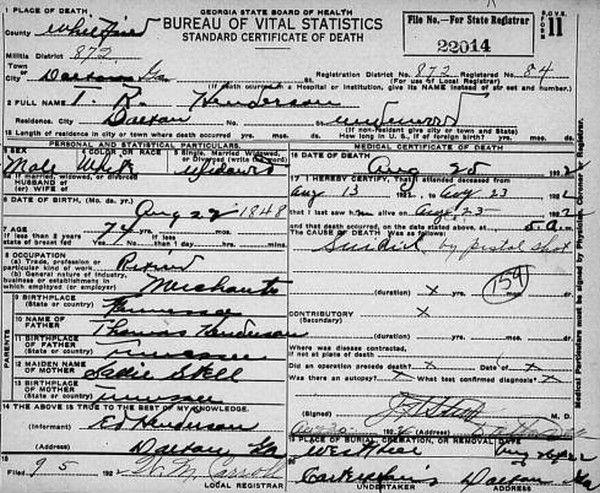 1 PLACE OF DEATH
GEORGIA STATE BOARD OF HEALTH
BUREAU OF VITAL STATISTICS
STANDARD CERTIFICATE OF DEATH
File No.—For State Registrar
22014
B.O.V.S. FORM 11
County Whitfield
Militia District 872
Town or City Dalton Ga
Registration District No. 872 Registered No. 84
(For use of Local Registrar)
(If death occurred in a Hospital or Institution, give its NAME instead of street and number.)
2 FULL NAME T. R. Henderson
Residence. City Dalton No. St.
(If non-Resident give city or town and State)
18 Length of residence in city or town where death occurred yrs. mos. ds. How long in U. S., if of foreign birth? yrs. mos. ds.
PERSONAL AND STATISTICAL PARTICULARS.
3 SEX Male
4 COLOR OR RACE White
5 Single, Married, Widowed, or Divorced (write the word) Widowed
If married, widowed, or divorced
HUSBAND of
(or) WIFE of
6 DATE OF BIRTH, (Mo. da. yr.) Aug 22 1848
7 AGE 74 yrs. mos. ds.
If less than 2 years state if breast fed Yes No
If less than 1 day hrs. mins.
8 OCCUPATION
(a) Trade, profession or particular kind of work Retired
(b) General nature of industry, business or establishment in which employed (or employer) Merchant
PARENTS
9 BIRTHPLACE (State or country) Tennessee
10 NAME OF FATHER Thomas Henderson
11 BIRTHPLACE OF FATHER (State or country) Tennessee
12 MAIDEN NAME OF MOTHER Sallie
13 BIRTHPLACE OF MOTHER (State or country) Tennessee
14 THE ABOVE IS TRUE TO THE BEST OF MY KNOWLEDGE.
(Informant) Ed Henderson
(Address) Dalton Ga
15 Filed 9 5 192 W. M. Carroll
LOCAL REGISTRAR
MEDICAL CERTIFICATE OF DEATH
16 DATE OF DEATH Aug 25 1922
17 I HEREBY CERTIFY, That I attended deceased from
Aug 13 1922, to Aug 23 1922
that I last saw him alive on Aug 23 1922
and that death occurred, on the date stated above, at 5 a. m.
The CAUSE OF DEATH Was as follows:
Suicide by pistol shot
159
(duration) x yrs. mos. ds.
CONTRIBUTORY x
(Secondary)
(duration) x yrs. mos. ds.
Where was disease contracted, if not at place of death
Did an operation precede death? x Date of x
Was there an autopsy? x What test confirmed diagnosis? x
(Signed) M. D.
192 (Address)
19 PLACE OF BURIAL, CREMATION, OR REMOVAL DATE
West Hill Aug 26 1922
20 UNDERTAKER ADDRESS
Dalton Ga
Medical Particulars must be signed by Physician, Coroner or Registrar.